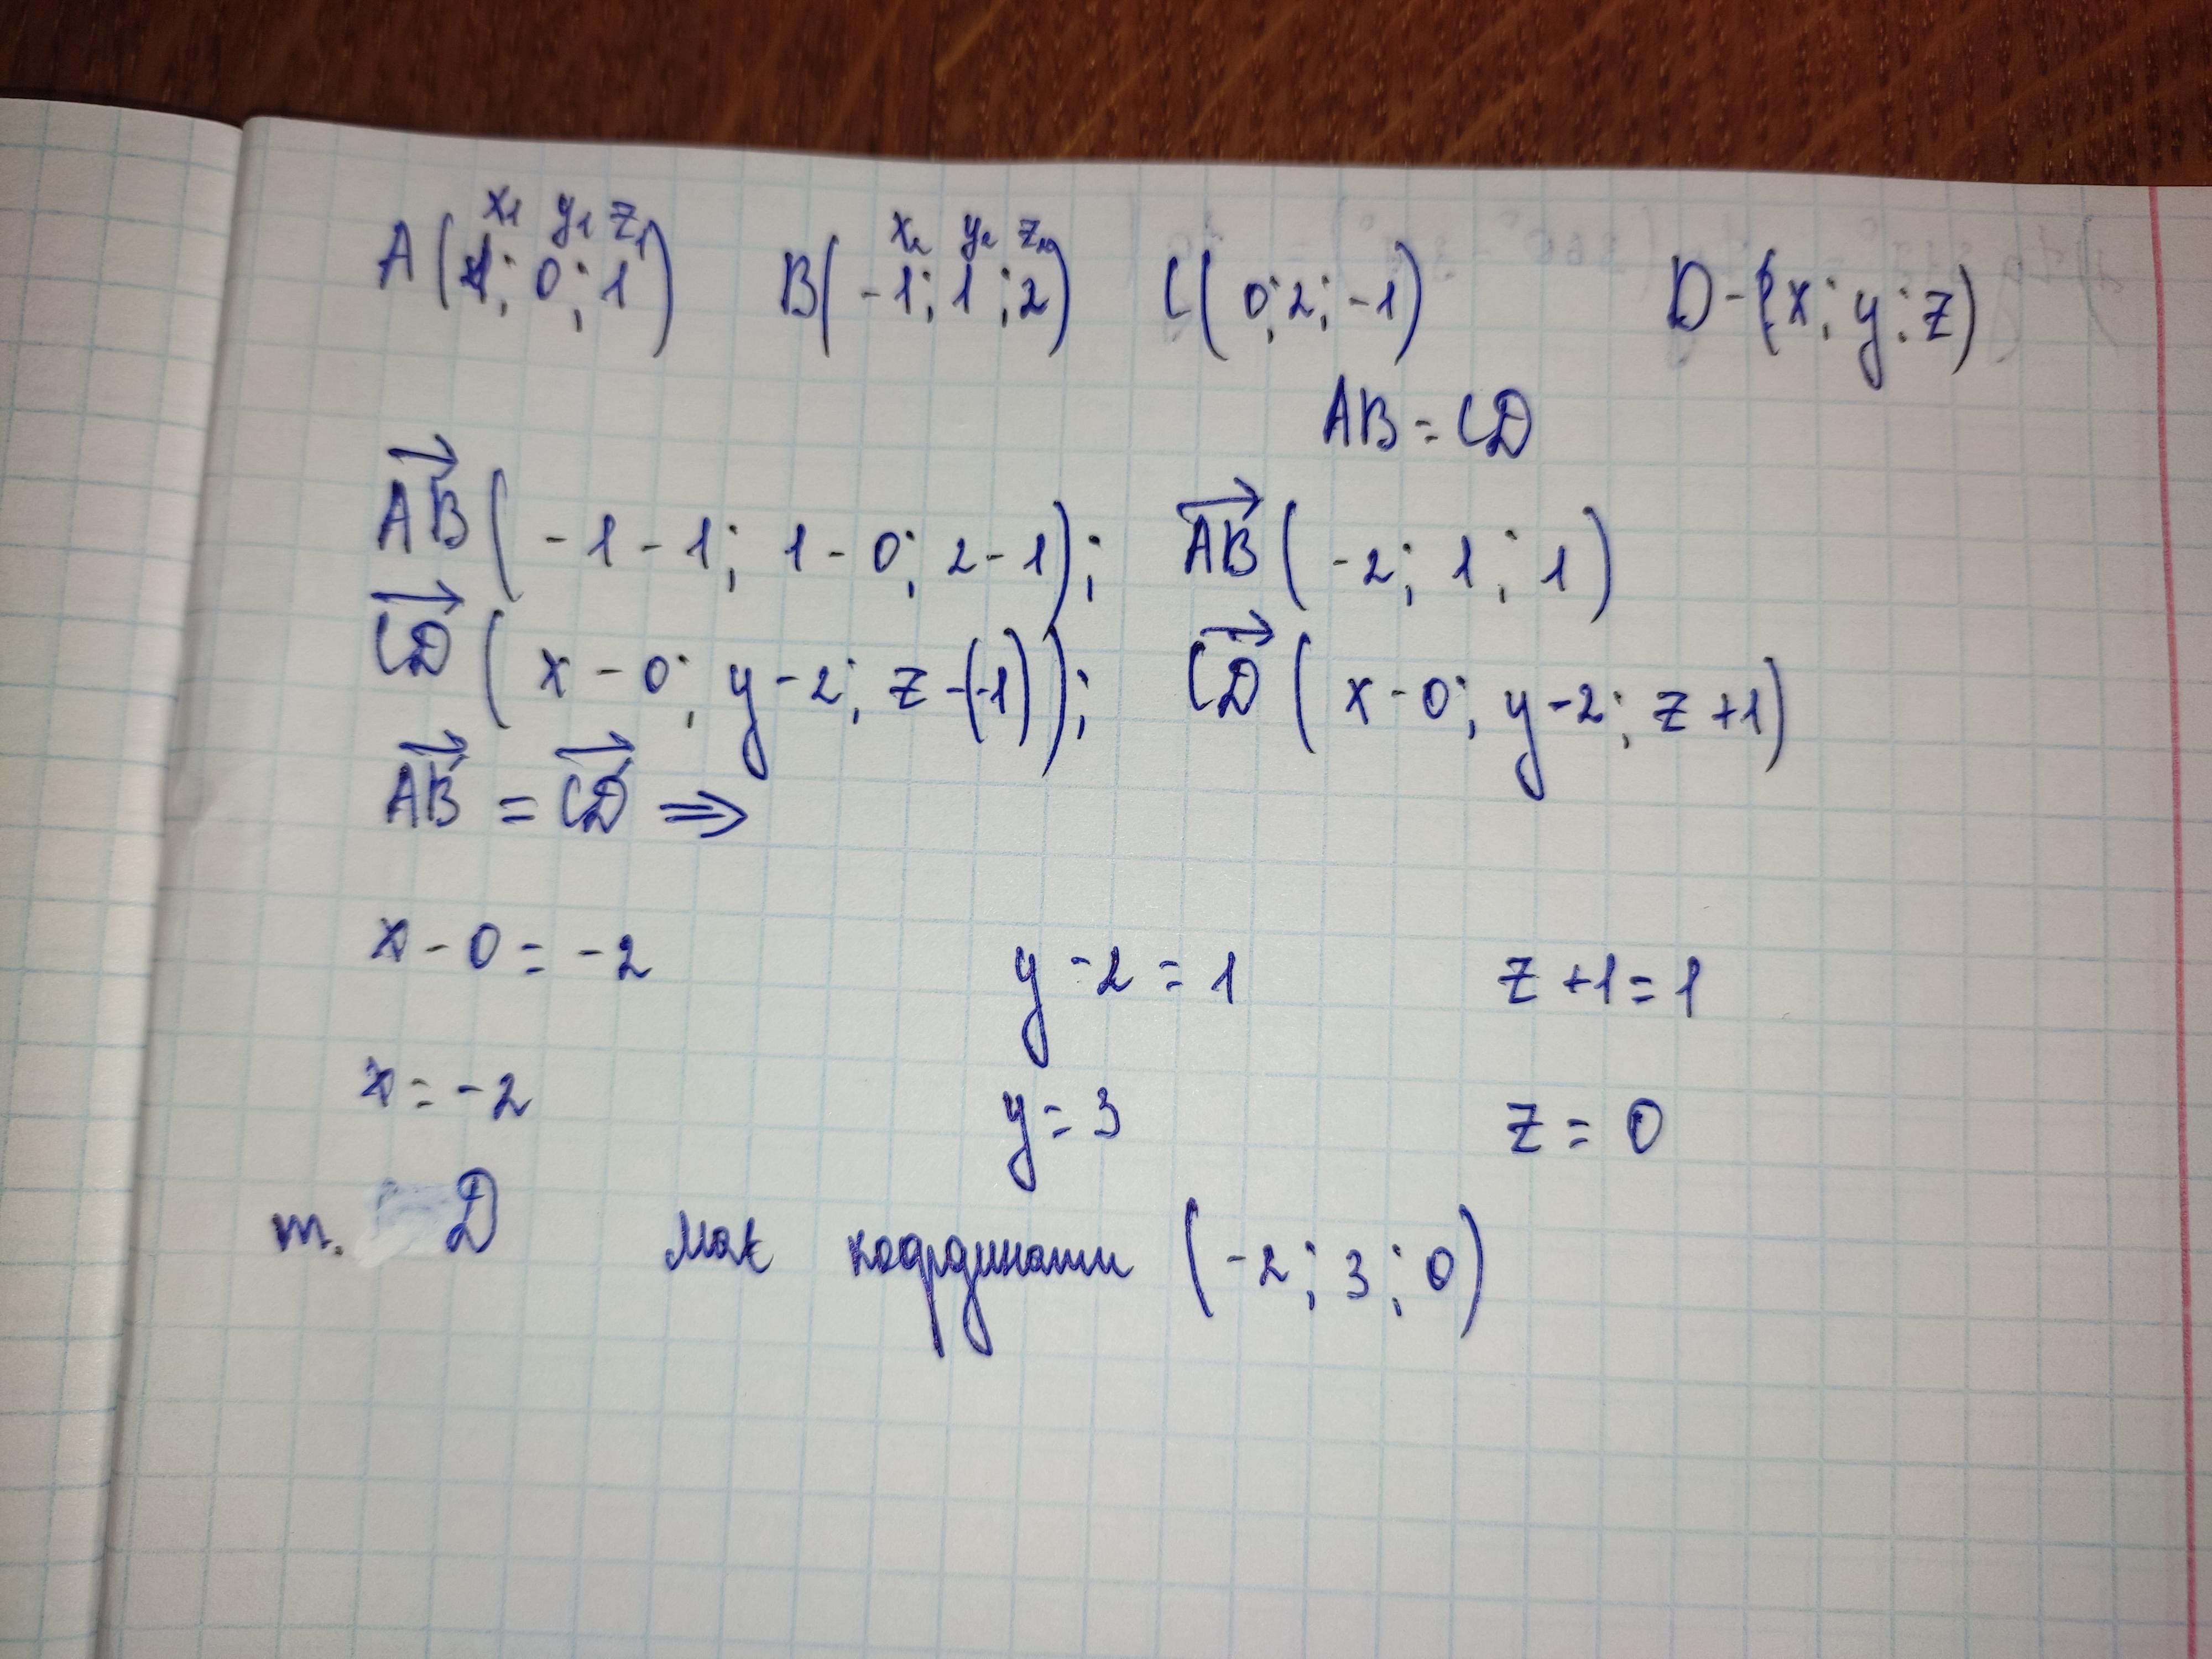 x₁ y₁ z₁ x₂ y₂ z₂
A(1; 0; 1) B(-1; 1; 2) C(0; 2; -1) D-(x; y; z)
AB = CD
AB(-1-1; 1-0; 2-1); AB(-2; 1; 1)
CD(x-0; y-2; z-(-1)); CD(x-0; y-2; z+1)
AB = CD ⇒
x-0 = -2 y-2 = 1 z+1 = 1
x = -2 y = 3 z = 0
т. D має координати (-2; 3; 0)